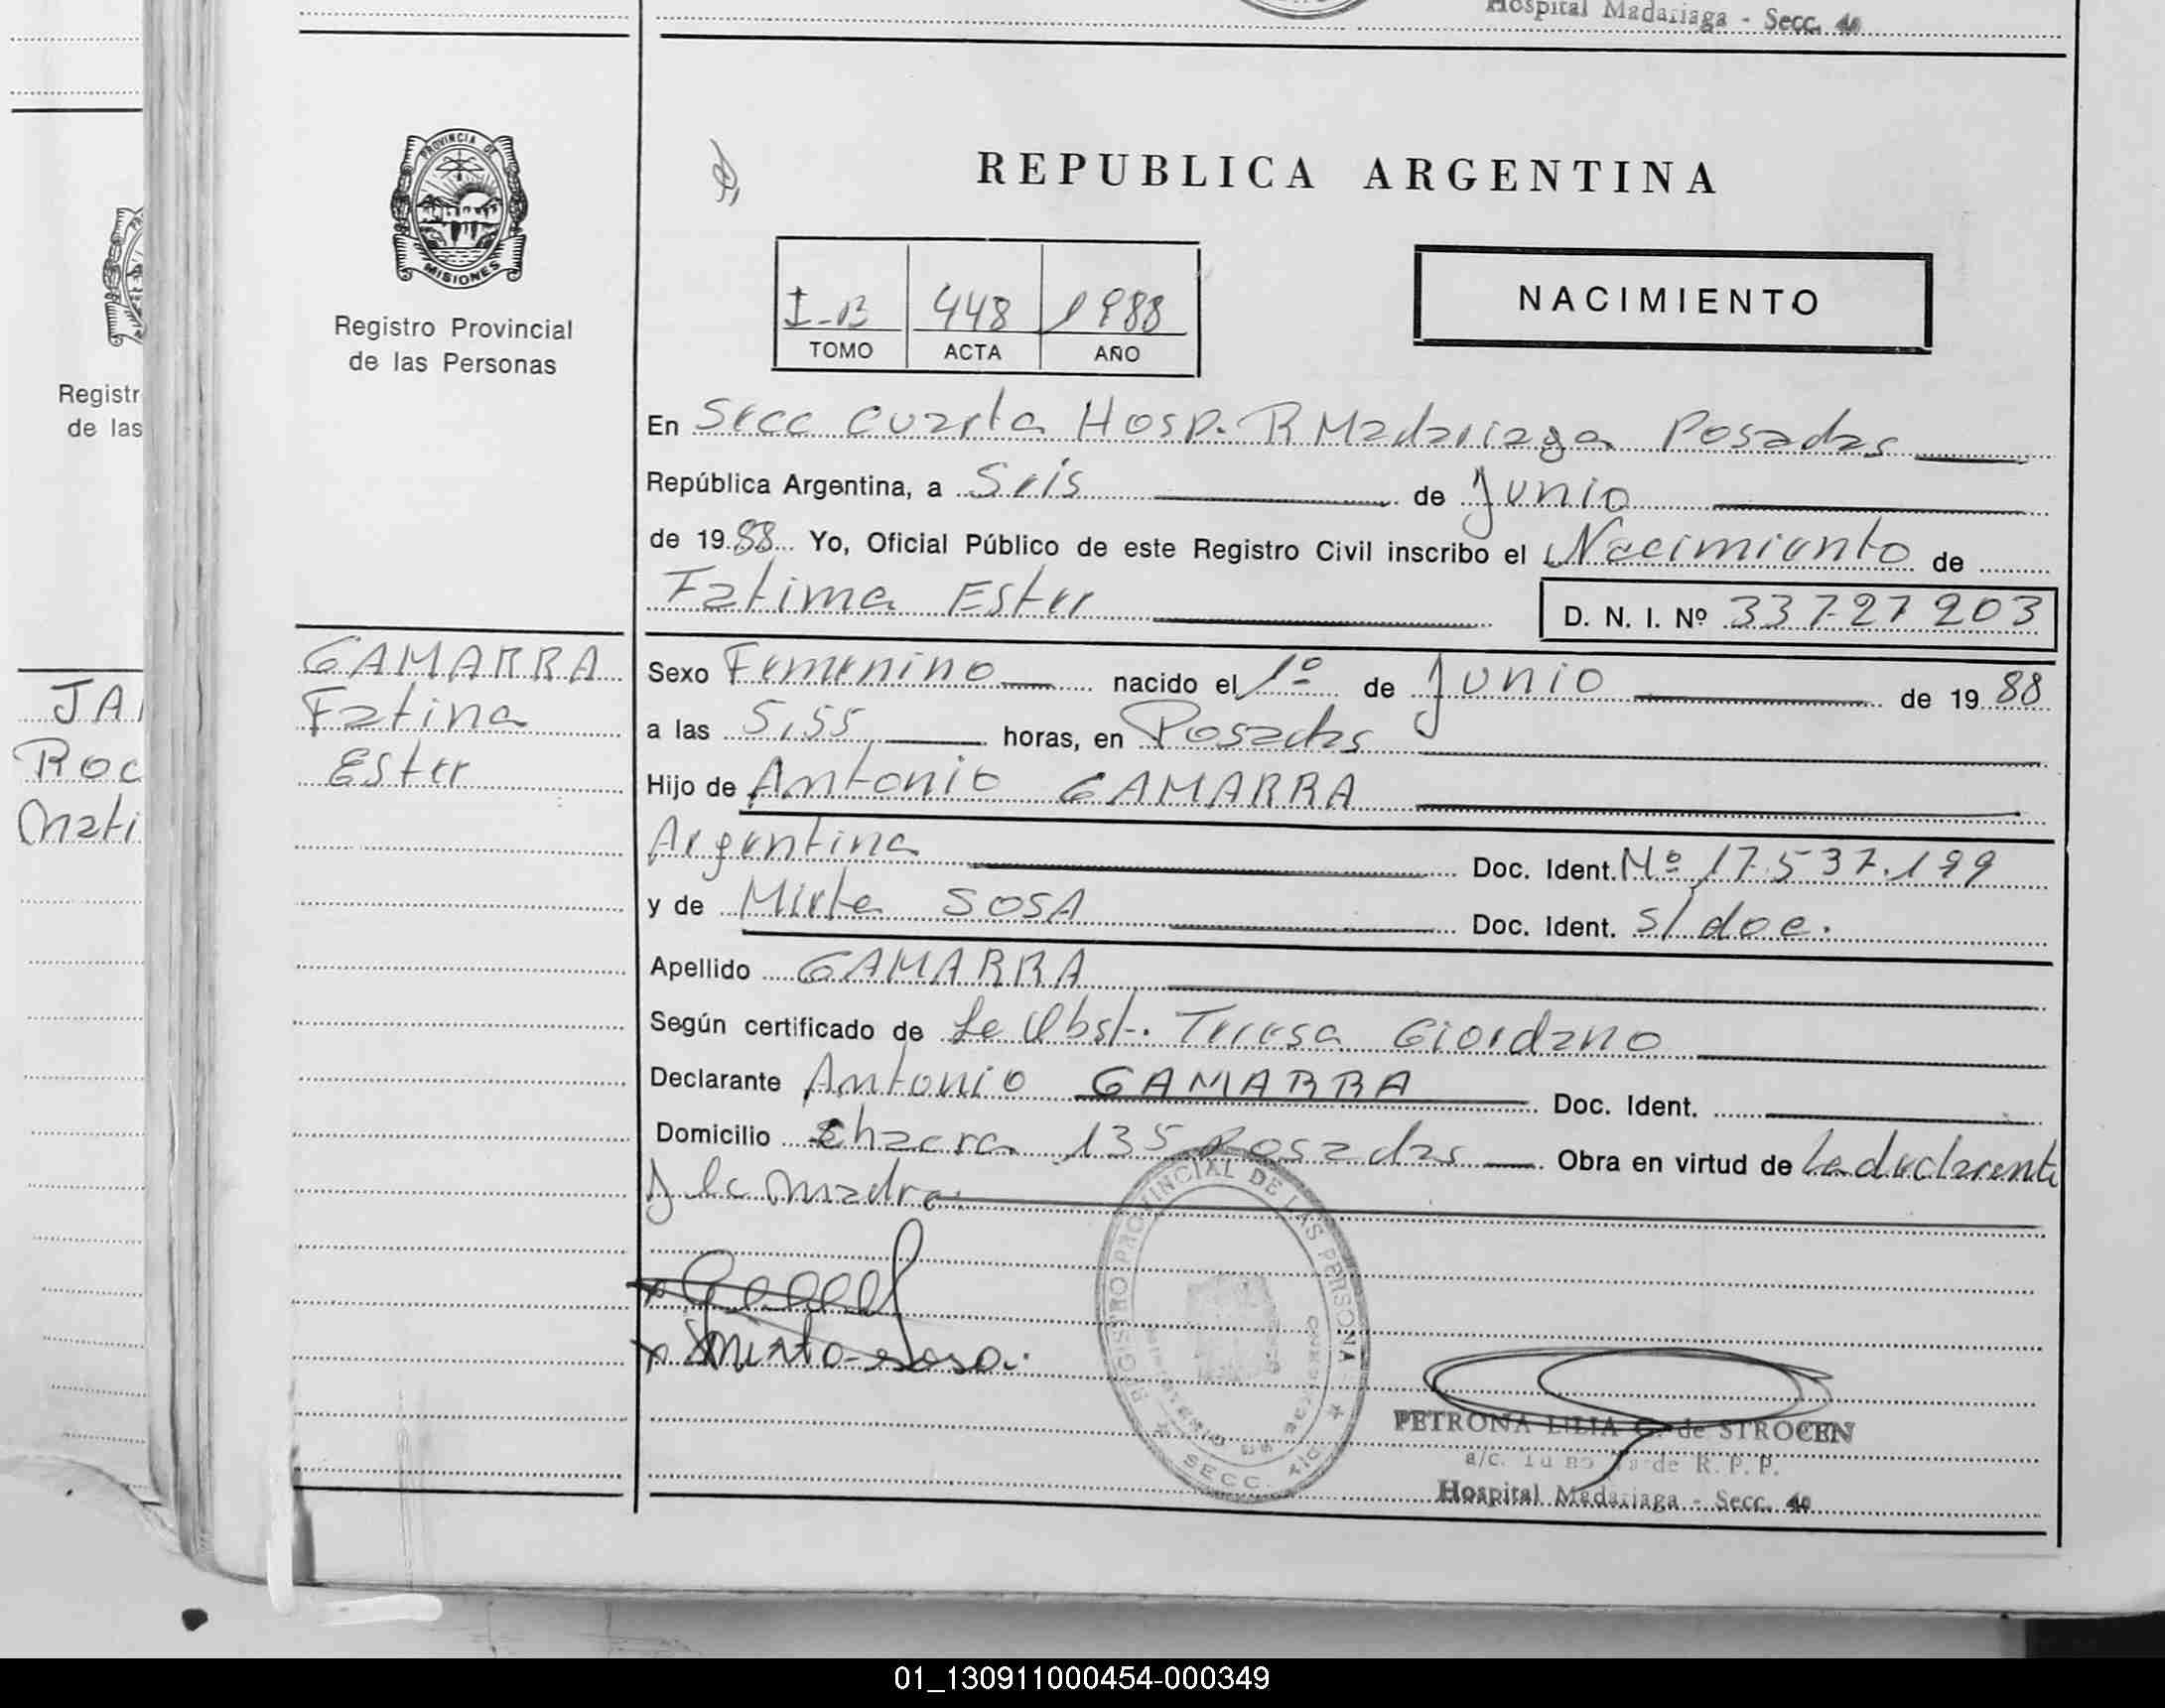 Hospital Madariaga - Secc. 4a
PROVINCIA DE
MISIONES
Registro Provincial
de las Personas
REPUBLICA ARGENTINA
I-B 448 1988
TOMO ACTA AÑO
NACIMIENTO
En Secc Cuarta Hosp. R Madariaga Posadas
República Argentina, a Seis de Junio
de 1988 Yo, Oficial Público de este Registro Civil inscribo el Nacimiento de
Fatima Ester
D. N. I. Nº 33727203
GAMARRA
Fatima
Ester
Sexo Femenino nacido el 1º de Junio de 1988
a las 5,55 horas, en Posadas
Hijo de Antonio GAMARRA
Argentina Doc. Ident. Nº 17.537.199
y de Mirta SOSA Doc. Ident. s/doc.
Apellido GAMARRA
Según certificado de La Obst. Teresa Giordano
Declarante Antonio GAMARRA Doc. Ident.
Domicilio Chacra 135 Posadas Obra en virtud de La declarante
y la madre.
Mirta Sosa
REGISTRO PROVINCIAL DE LAS PERSONAS
SECC. 4ta
PETRONA LILIA G. de STROCEN
a/c. Turno Tarde R. P. P.
Hospital Madariaga - Secc. 4a
Registr
de las
JA
Roc
Mati
01_130911000454-000349